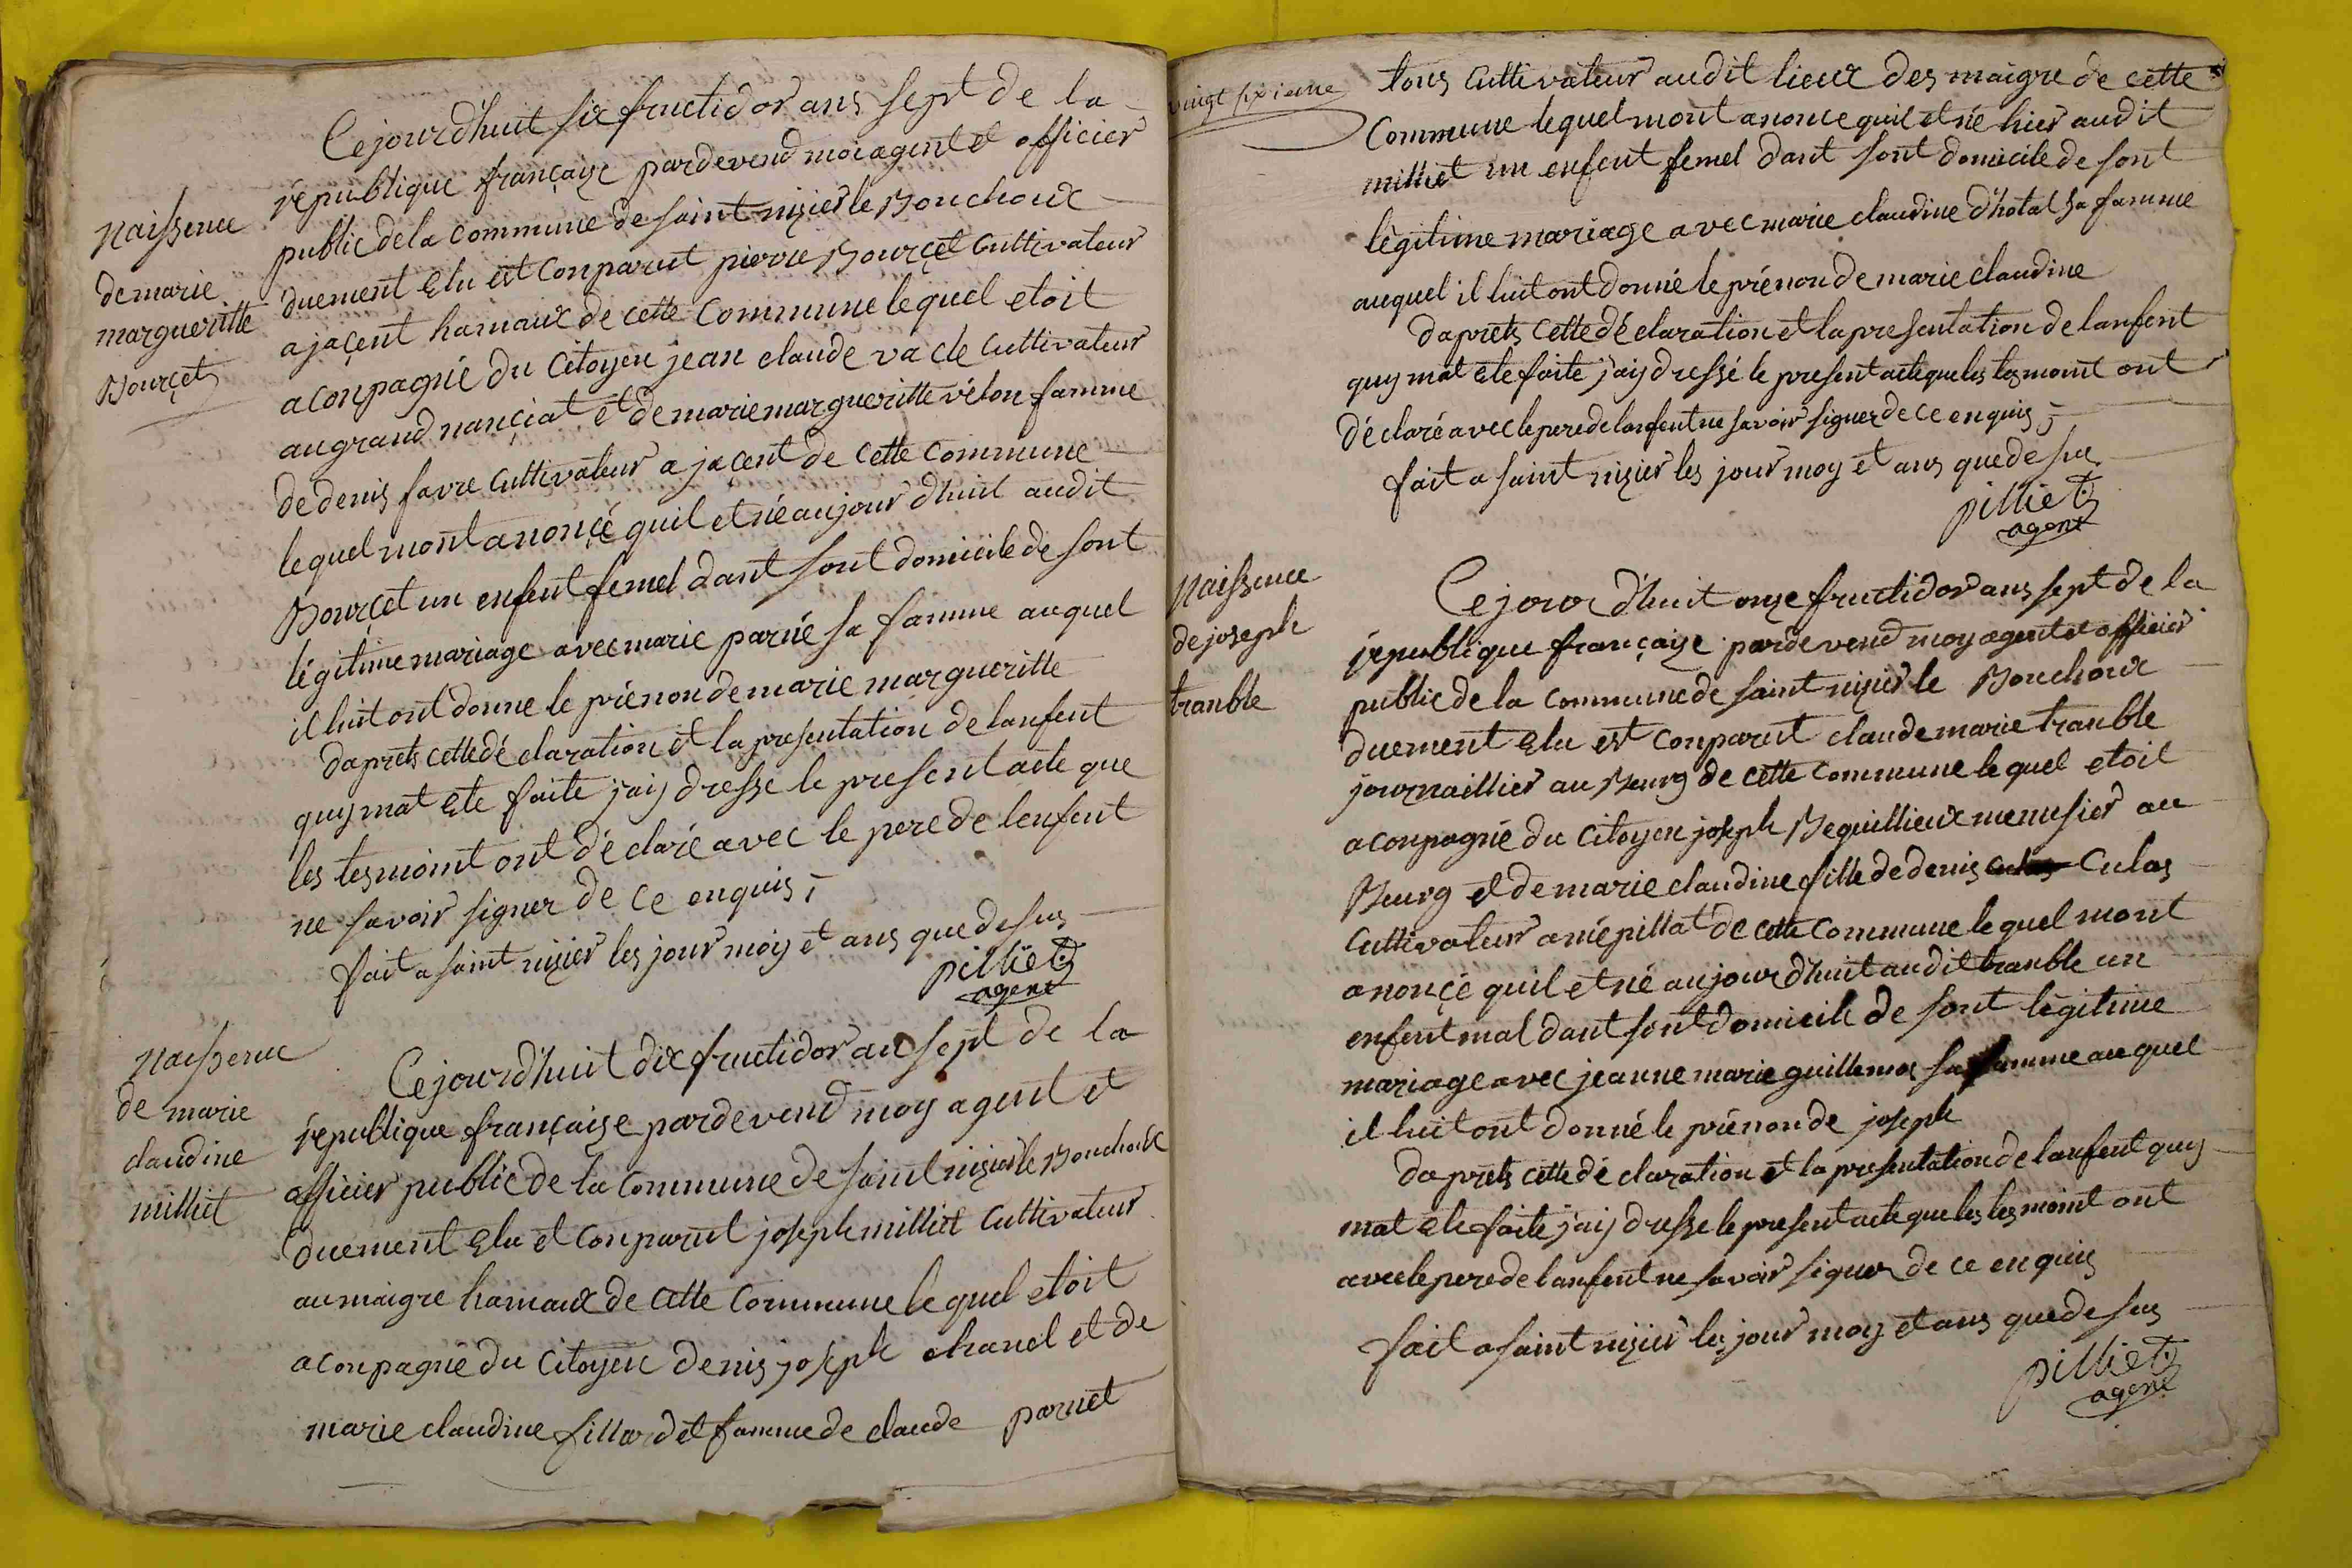 Naissence
de marie
margueritte
Bourçet
Ce jourdhuit six fructidor ans sept de la
république françaize pardevend moi agent et officier
public de la commune de saint nizier le Bouchoux
duement Elu est conparut pierre Bourçet Cultivateur
a jaçent hamaux de cette Commune lequel etoit
aconpagnié du Citoyen jean claude vacle Cultivateur
au grand nançiat et de marie margueritte vélon famme
de denis favre Cultivateur a jaçent de cette Commune
lequel mont anonçé quil et né aujour dhuit audit
Bourçet un enfent femel dant sont domicile de sont
légitime mariage avec marie parné sa famme auquel
il luit ont donne le prénon de marie margueritte
daprets cette dé claration et la presentation de lanfent
quy mat Ete faite jaij dresse le present acte que
les tesmoint ont déclaré avec le pere de lenfent
ne savoir signer de ce enquis;
fait a saint nizier les jour moy et ans que desus
pilliet
agent
Naissence
de marie
claudine
milliet
Ce jourdhuit dix fructidor an sept de la
republique françaize pardevend moy agent et
officier public de la Commune de saint nizier le Bouchoux
duement Elu et conparut joseph milliet Cultivateur
au maigre hamaux de cette Commune lequel etoit
aconpagné du Citoyen denis joseph chanel et de
marie claudine fillard et famme de claude parnet
vingt sixieme
tous Cultivateur audit lieux des maigre de cette
Commune lequel mont anonce quil et né hier audit
milliet un enfent femel dant sont domicile de sont
légitime mariage avec marie claudine d'hotal sa famme
auquel il luit ont donné le prénon de marie claudine
daprets cette déclaration et la presentation de lanfent
quy mat Ete faite jaij dressé le present acte que les tesmoint ont
déclaré avec le pere de lanfent ne savoir signer de ce enquis;
fait a saint nizier les jour moy et ans que de sus
pilliet
agent
Naissence
de joseph
tranble
Ce jour d'huit onze fructidor ans sept de la
république françaize pardevend moy agent et officier
public de la commune de saint nizier le Bouchoux
duement Elu est conparut claude marie tranble
journaillier au Bourg de cette commune lequel etoit
aconpagné du Citoyen joseph Beguillieux menusier au
Bourg et de marie claudine fille de denis Culas
Cultivateur a mépillat de cette Commune lequel mont
anonçé quil et né aujour dhuit audit tranble un
enfent mal dant sont domicile de sont légitime
mariage avec jeanne marie guillemos sa famme auquel
il luit ont donné le prénon de joseph
daprets cette dé claration et la presentation de lanfent quy
mat Ete faite jaij dresse le present acte que les tesmoint ont
avec le pere de lanfent ne savoir signer de ce enquis
fait a saint nizier les jour moy et ans que de sus
pilliet
agent